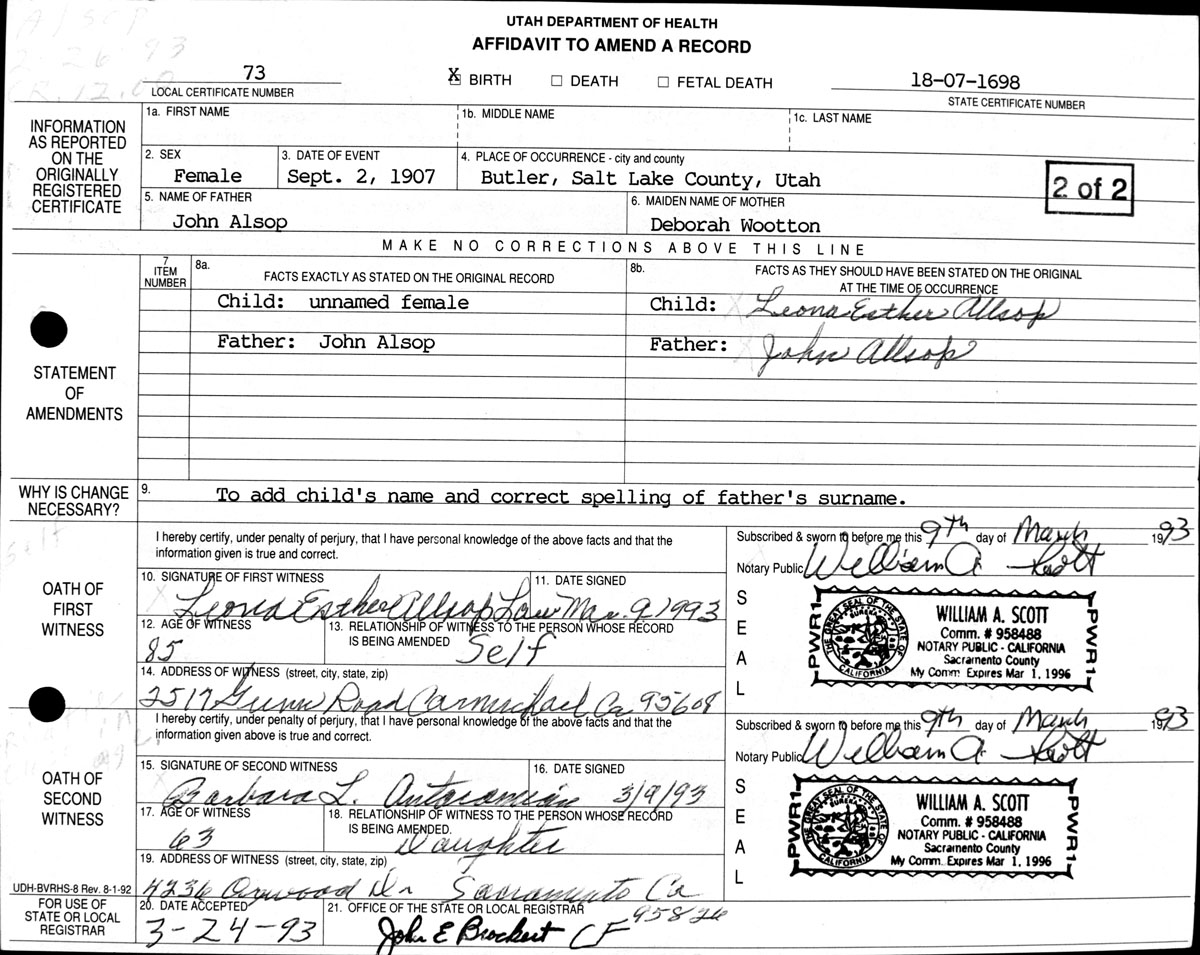 UTAH DEPARTMENT OF HEALTH
AFFIDAVIT TO AMEND A RECORD
73
LOCAL CERTIFICATE NUMBER
X BIRTH ☐ DEATH ☐ FETAL DEATH
18-07-1698
STATE CERTIFICATE NUMBER
INFORMATION AS REPORTED ON THE ORIGINALLY REGISTERED CERTIFICATE
1a. FIRST NAME 1b. MIDDLE NAME 1c. LAST NAME
2. SEX 3. DATE OF EVENT 4. PLACE OF OCCURRENCE - city and county
Female Sept. 2, 1907 Butler, Salt Lake County, Utah
2 of 2
5. NAME OF FATHER 6. MAIDEN NAME OF MOTHER
John Alsop Deborah Wootton
MAKE NO CORRECTIONS ABOVE THIS LINE
STATEMENT OF AMENDMENTS
7 ITEM NUMBER
8a. FACTS EXACTLY AS STATED ON THE ORIGINAL RECORD
8b. FACTS AS THEY SHOULD HAVE BEEN STATED ON THE ORIGINAL
AT THE TIME OF OCCURRENCE
Child: unnamed female Child: Leona Esther Allsop
Father: John Alsop Father: John Allsop
WHY IS CHANGE NECESSARY?
9. To add child's name and correct spelling of father's surname.
OATH OF FIRST WITNESS
I hereby certify, under penalty of perjury, that I have personal knowledge of the above facts and that the
information given is true and correct.
Subscribed & sworn to before me this 9th day of March 1993
Notary Public William A. Scott
10. SIGNATURE OF FIRST WITNESS 11. DATE SIGNED
Leona Esther Allsop Law Mar. 9 1993
12. AGE OF WITNESS 13. RELATIONSHIP OF WITNESS TO THE PERSON WHOSE RECORD
IS BEING AMENDED
85 Self
14. ADDRESS OF WITNESS (street, city, state, zip)
2517 Gunn Road Carmichael Ca 95608
SEAL
THE GREAT SEAL OF THE STATE OF CALIFORNIA
EUREKA
PWR1
WILLIAM A. SCOTT
Comm. # 958488
NOTARY PUBLIC - CALIFORNIA
Sacramento County
My Comm. Expires Mar 1, 1996
PWR1
OATH OF SECOND WITNESS
I hereby certify, under penalty of perjury, that I have personal knowledge of the above facts and that the
information given above is true and correct.
Subscribed & sworn to before me this 9th day of March 1993
Notary Public William A. Scott
15. SIGNATURE OF SECOND WITNESS 16. DATE SIGNED
Barbara L. 3/9/93
17. AGE OF WITNESS 18. RELATIONSHIP OF WITNESS TO THE PERSON WHOSE RECORD
IS BEING AMENDED.
63 Daughter
19. ADDRESS OF WITNESS (street, city, state, zip)
4236 Dr Sacramento Ca
95826
SEAL
THE GREAT SEAL OF THE STATE OF CALIFORNIA
EUREKA
PWR1
WILLIAM A. SCOTT
Comm. # 958488
NOTARY PUBLIC - CALIFORNIA
Sacramento County
My Comm. Expires Mar 1, 1996
PWR1
UDH-BVRHS-8 Rev. 8-1-92
FOR USE OF STATE OR LOCAL REGISTRAR
20. DATE ACCEPTED 21. OFFICE OF THE STATE OR LOCAL REGISTRAR
3-24-93 John E Brockert CF